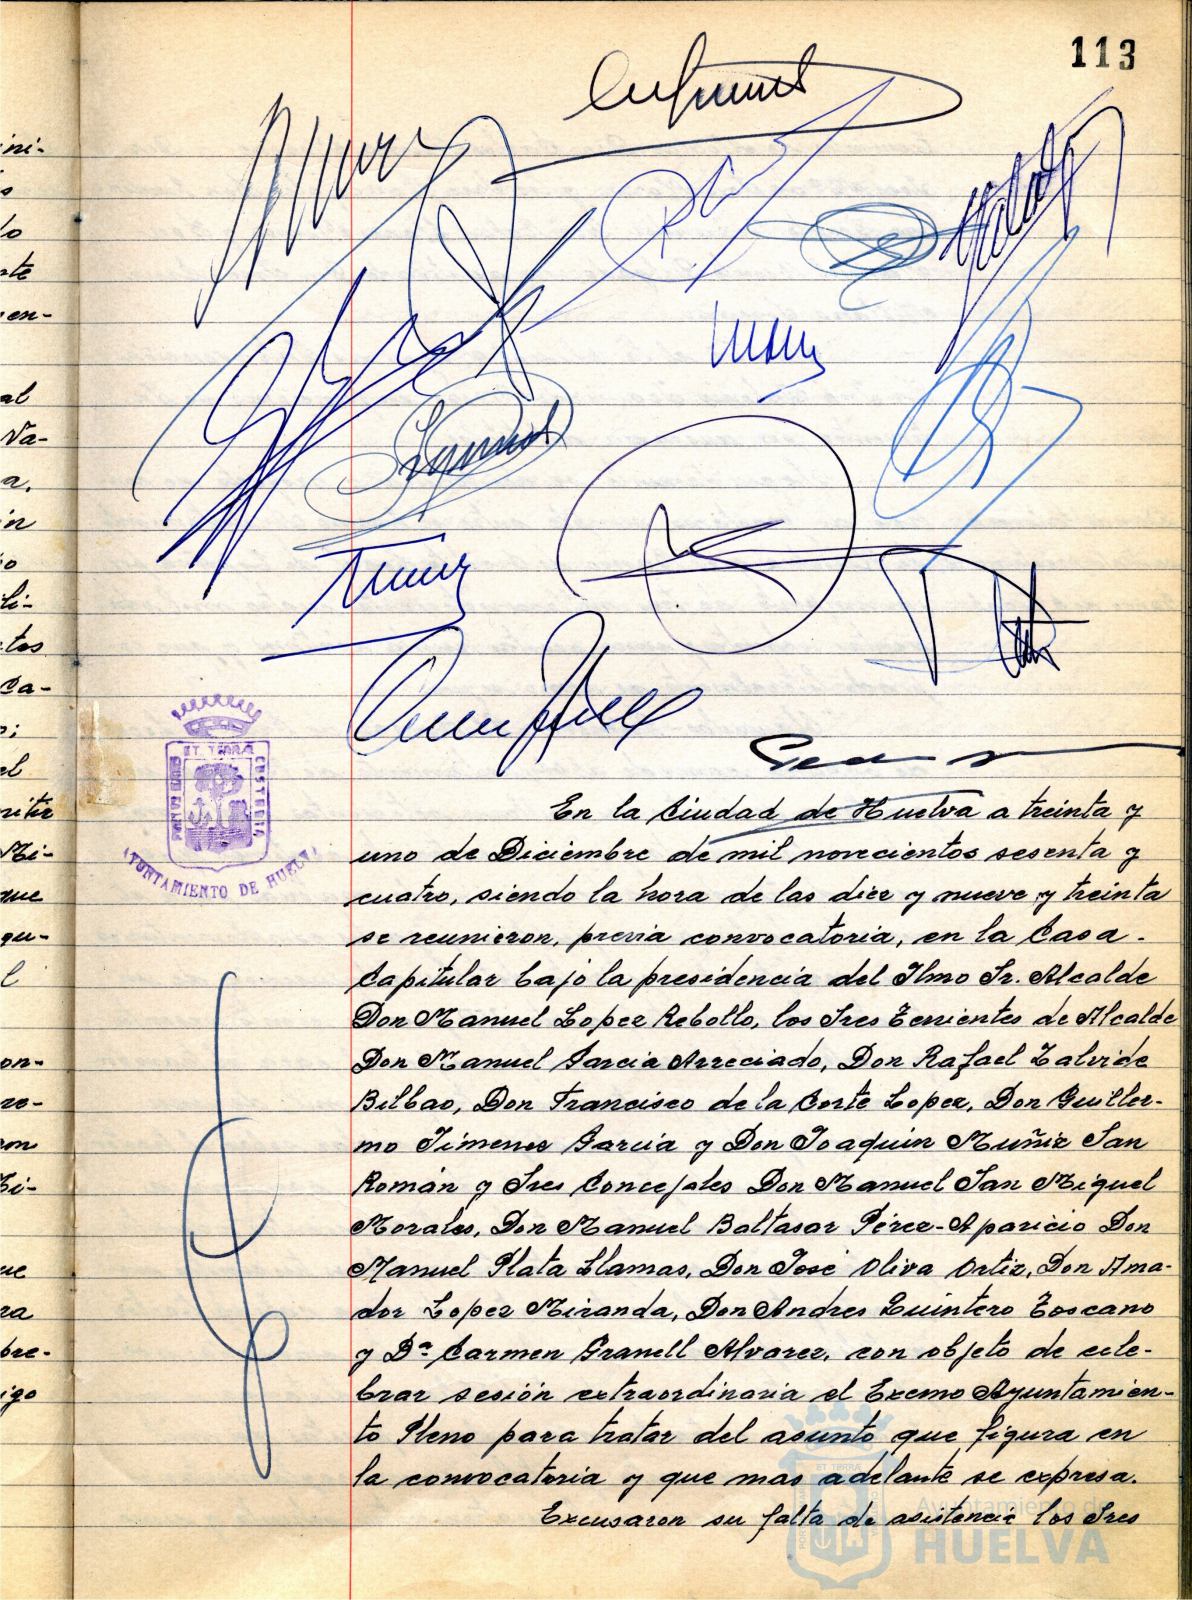 113
ini-
s
lo
te
en-
al
Va-
a,
in
io
li-
tos
Ca-
el
ritir
Mi-
que
qu-
l
on-
ro-
on
ra
bre-
igo
ET TERRÆ
CUSTODIA
AYUNTAMIENTO DE HUELVA
En la Ciudad de Huelva a treinta y
uno de Diciembre de mil novecientos sesenta y
cuatro, siendo la hora de las diez y nueve y treinta
se reunieron, previa convocatoria, en la Casa
Capitular bajo la presidencia del Ilmo Sr. Alcalde
Don Manuel Lopez Rebollo, los Sres Tenientes de Alcalde
Don Manuel Garcia Arreciado, Don Rafael Zalvide
Bilbao, Don Francisco de la Corte Lopez, Don Guiller-
mo Jimenez Garcia y Don Joaquin Muñiz San
Román y Sres Concejales Don Manuel San Miguel
Morales, Don Manuel Baltasar Pérez-Aparicio Don
Manuel Plata Llamas, Don José Oliva Ortiz, Don Ama-
dor Lopez Miranda, Don Andres Quintero Toscano
y Dª Carmen Granell Alvarez, con objeto de cele-
brar sesión extraordinaria el Excmo Ayuntamien-
to Pleno para tratar del asunto que figura en
la convocatoria y que mas adelante se expresa.
Excusaron su falta de asistencia los Sres
ET TERRÆ
Ayuntamiento de
HUELVA